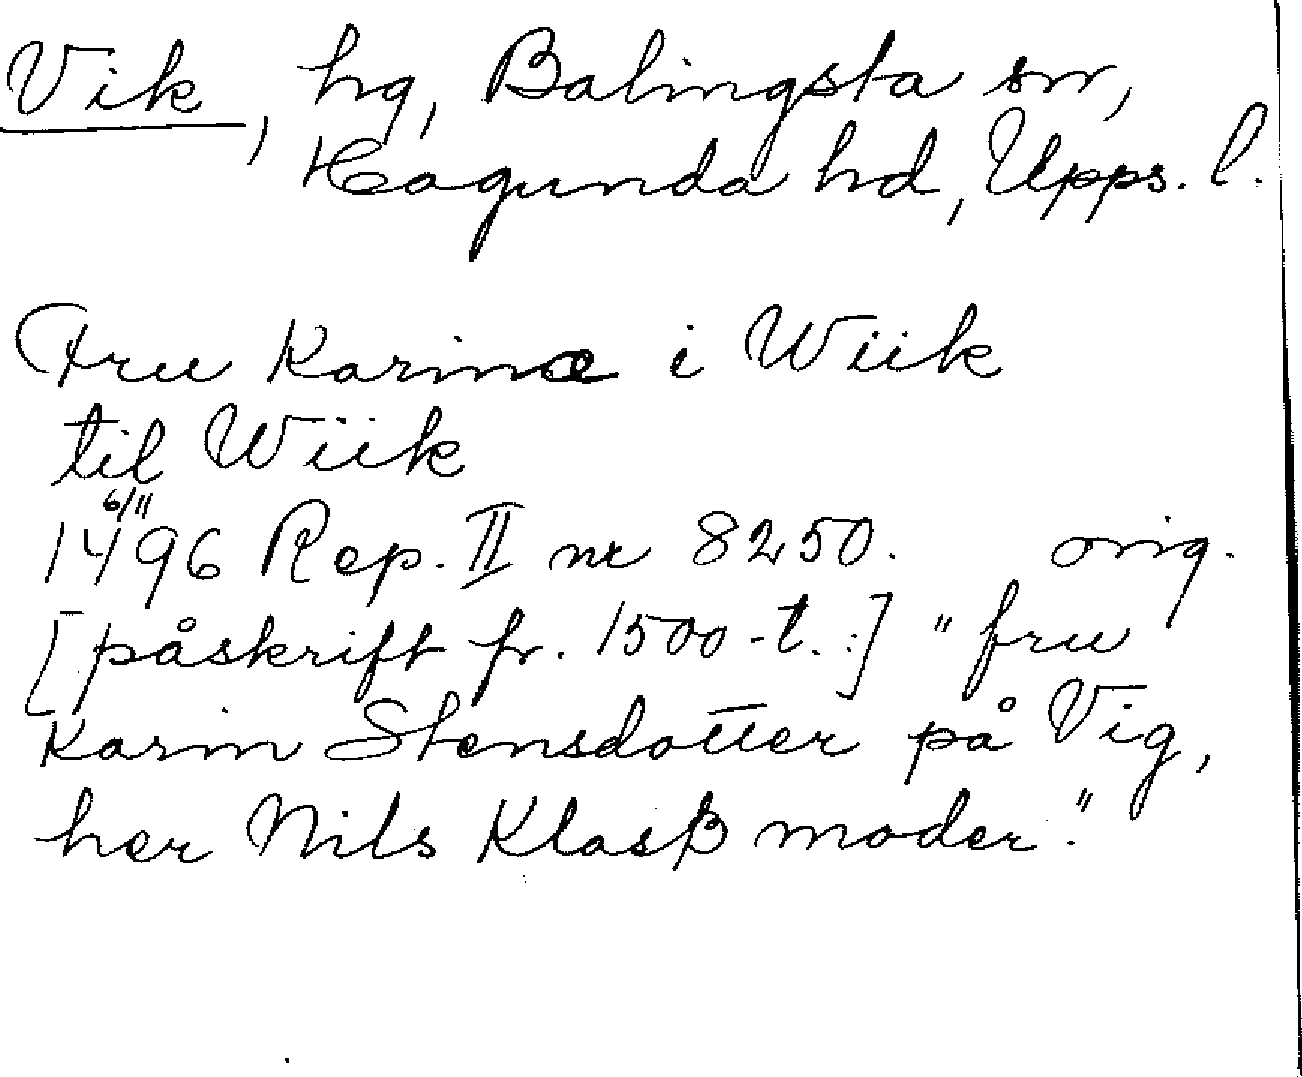 Vik, hg, Balingsta sn,
Hagunda hd, Upps. l.
Fru Karinæ i Wiik
til Wiik
6/11
1496 Rep. II nr 8250. orig.
[påskrift fr. 1500-t.:] "fru
Karin Stensdotter på Vig,
her Nils Klasß moder."